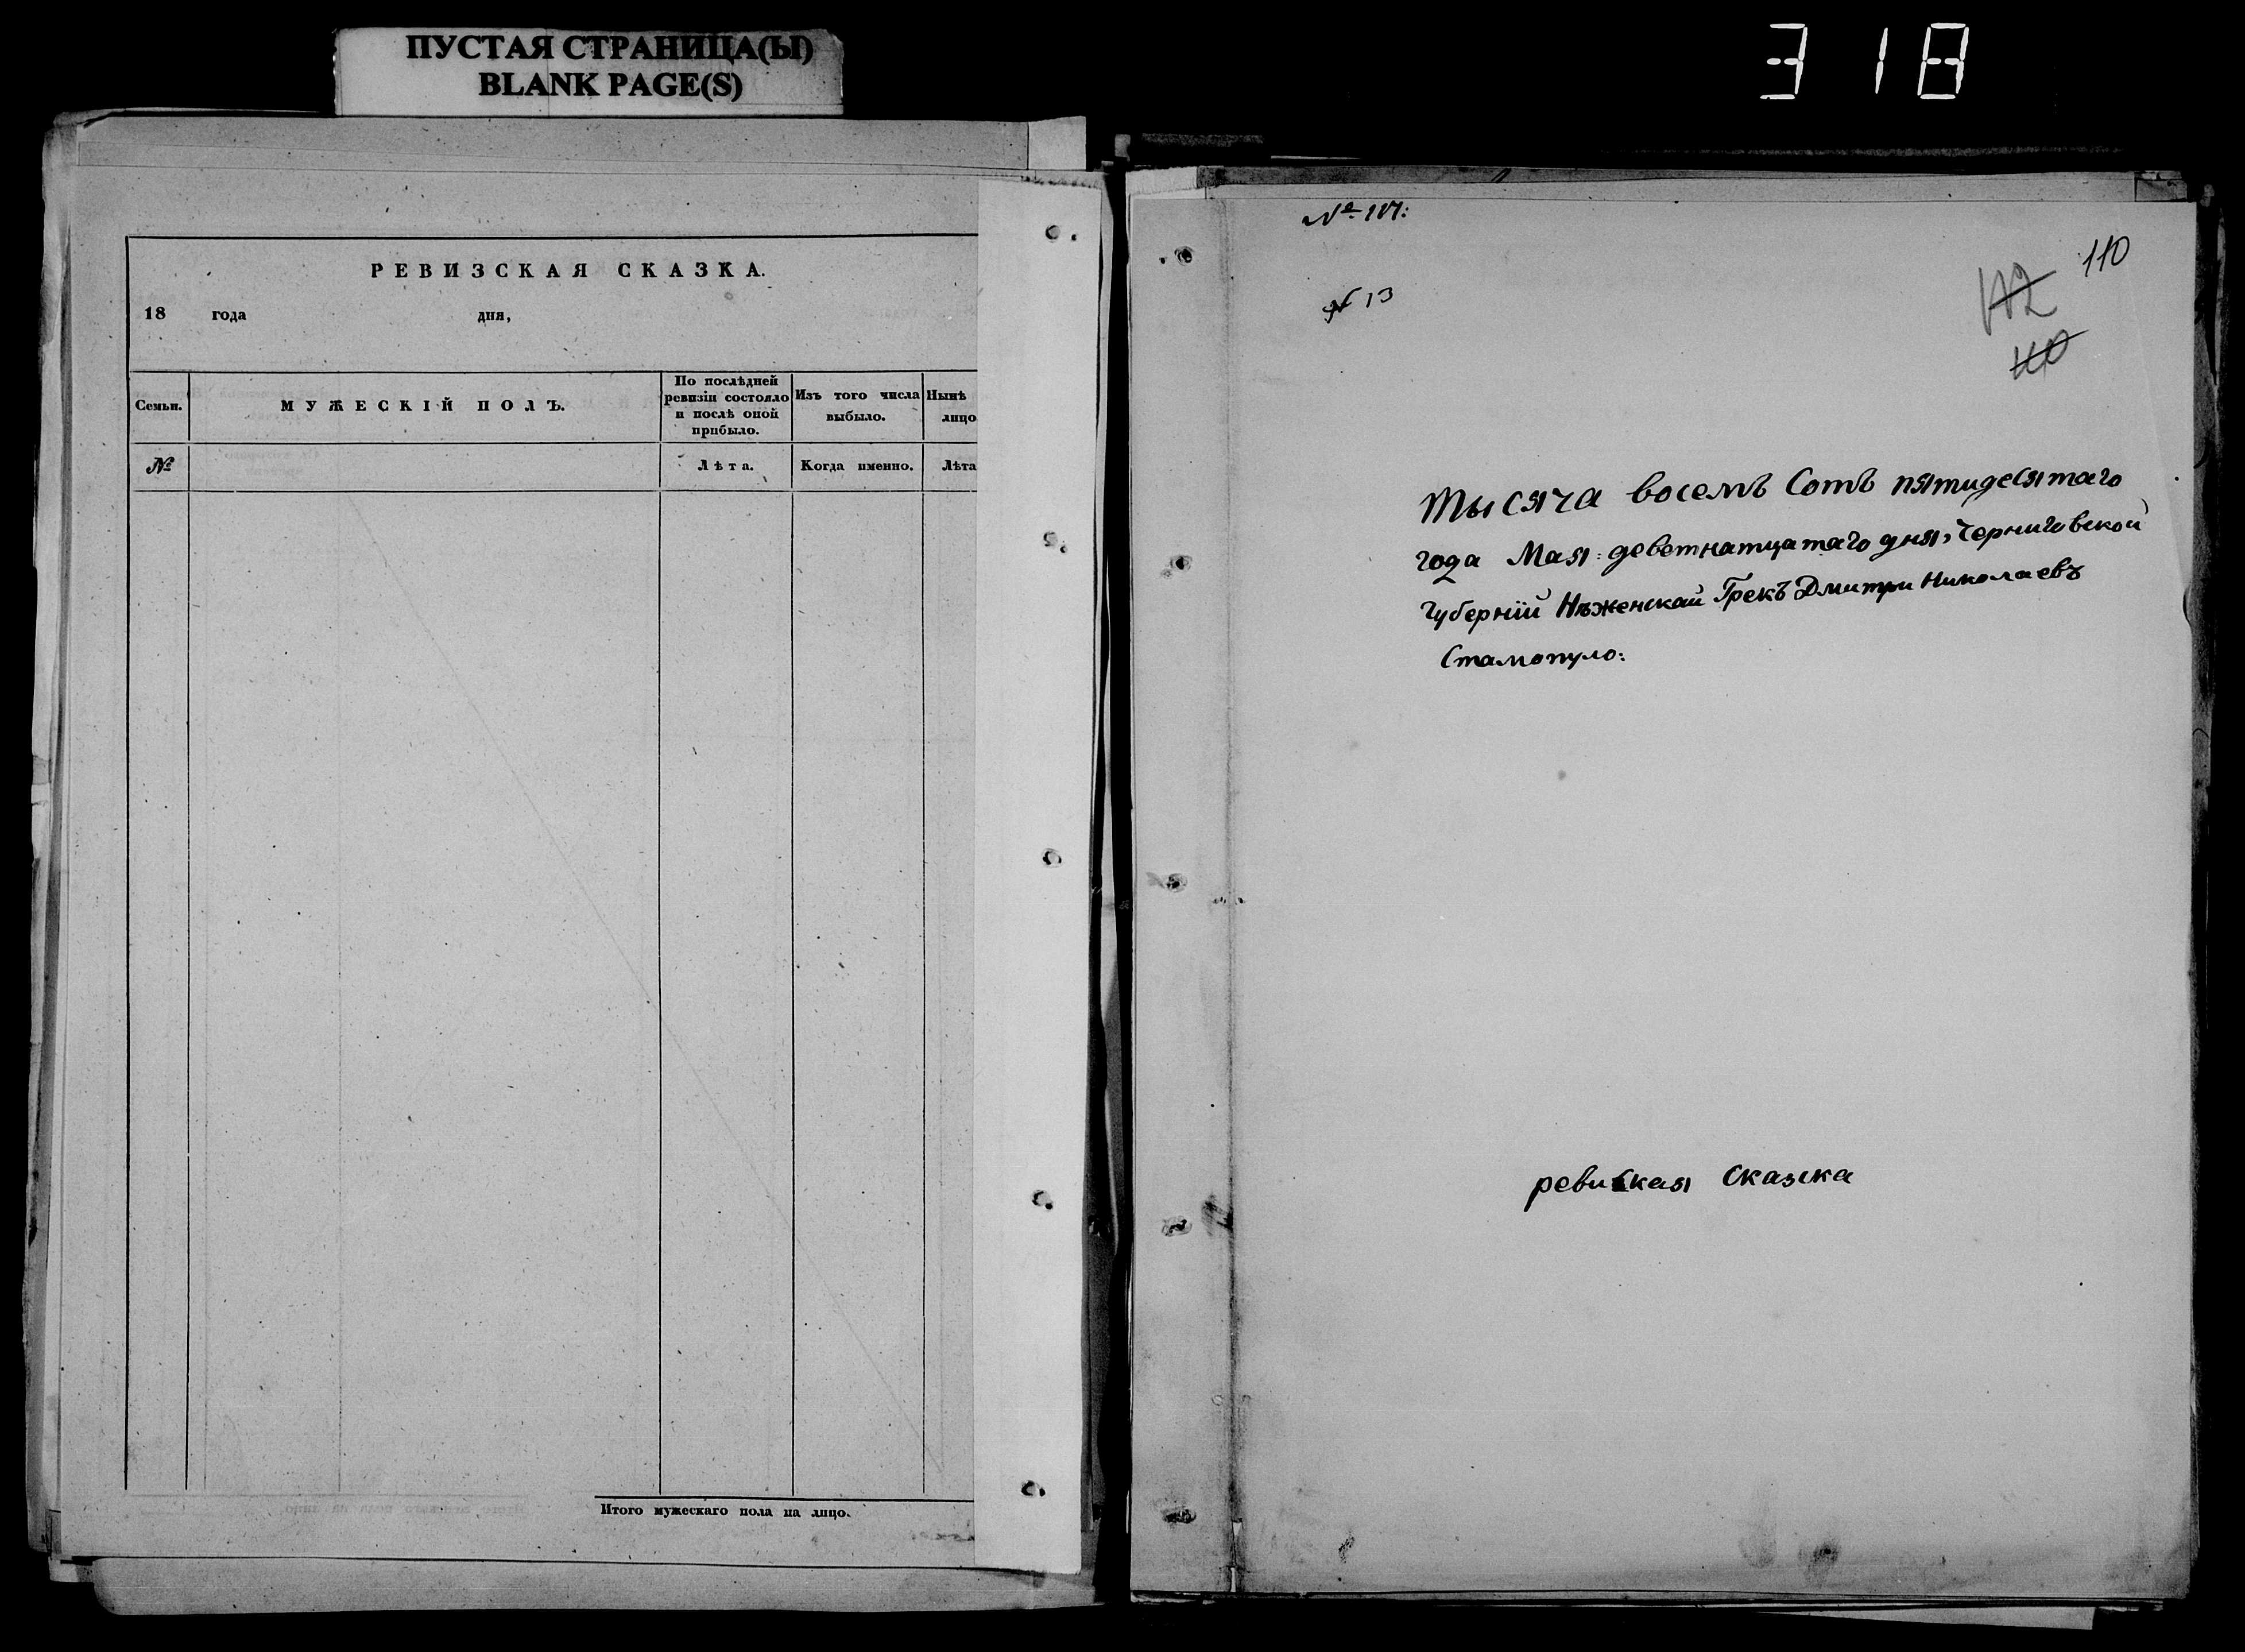 ПУСТАЯ СТРАНИЦА(Ы)
BLANK PAGE(S)
318
РЕВИЗСКАЯ СКАЗКА.
18 года дня,
Семьи.
МУЖЕСКІЙ ПОЛЪ.
По послѣдней
ревизіи состояло
и послѣ оной
прибыло.
Изъ того числа
выбыло.
Нынѣ
лицо
№
Лѣта.
Когда именно.
Лѣта
Итого мужескаго пола на лицо.
№ 13
110
Тысяча восемъ Сотъ пятидесятаго
года Мая: деветнатцатаго дня, Черниговской
Губерніи Нѣженскай Грекъ Дмитри Николаевъ
Стамопуло:
ревиская Сказка